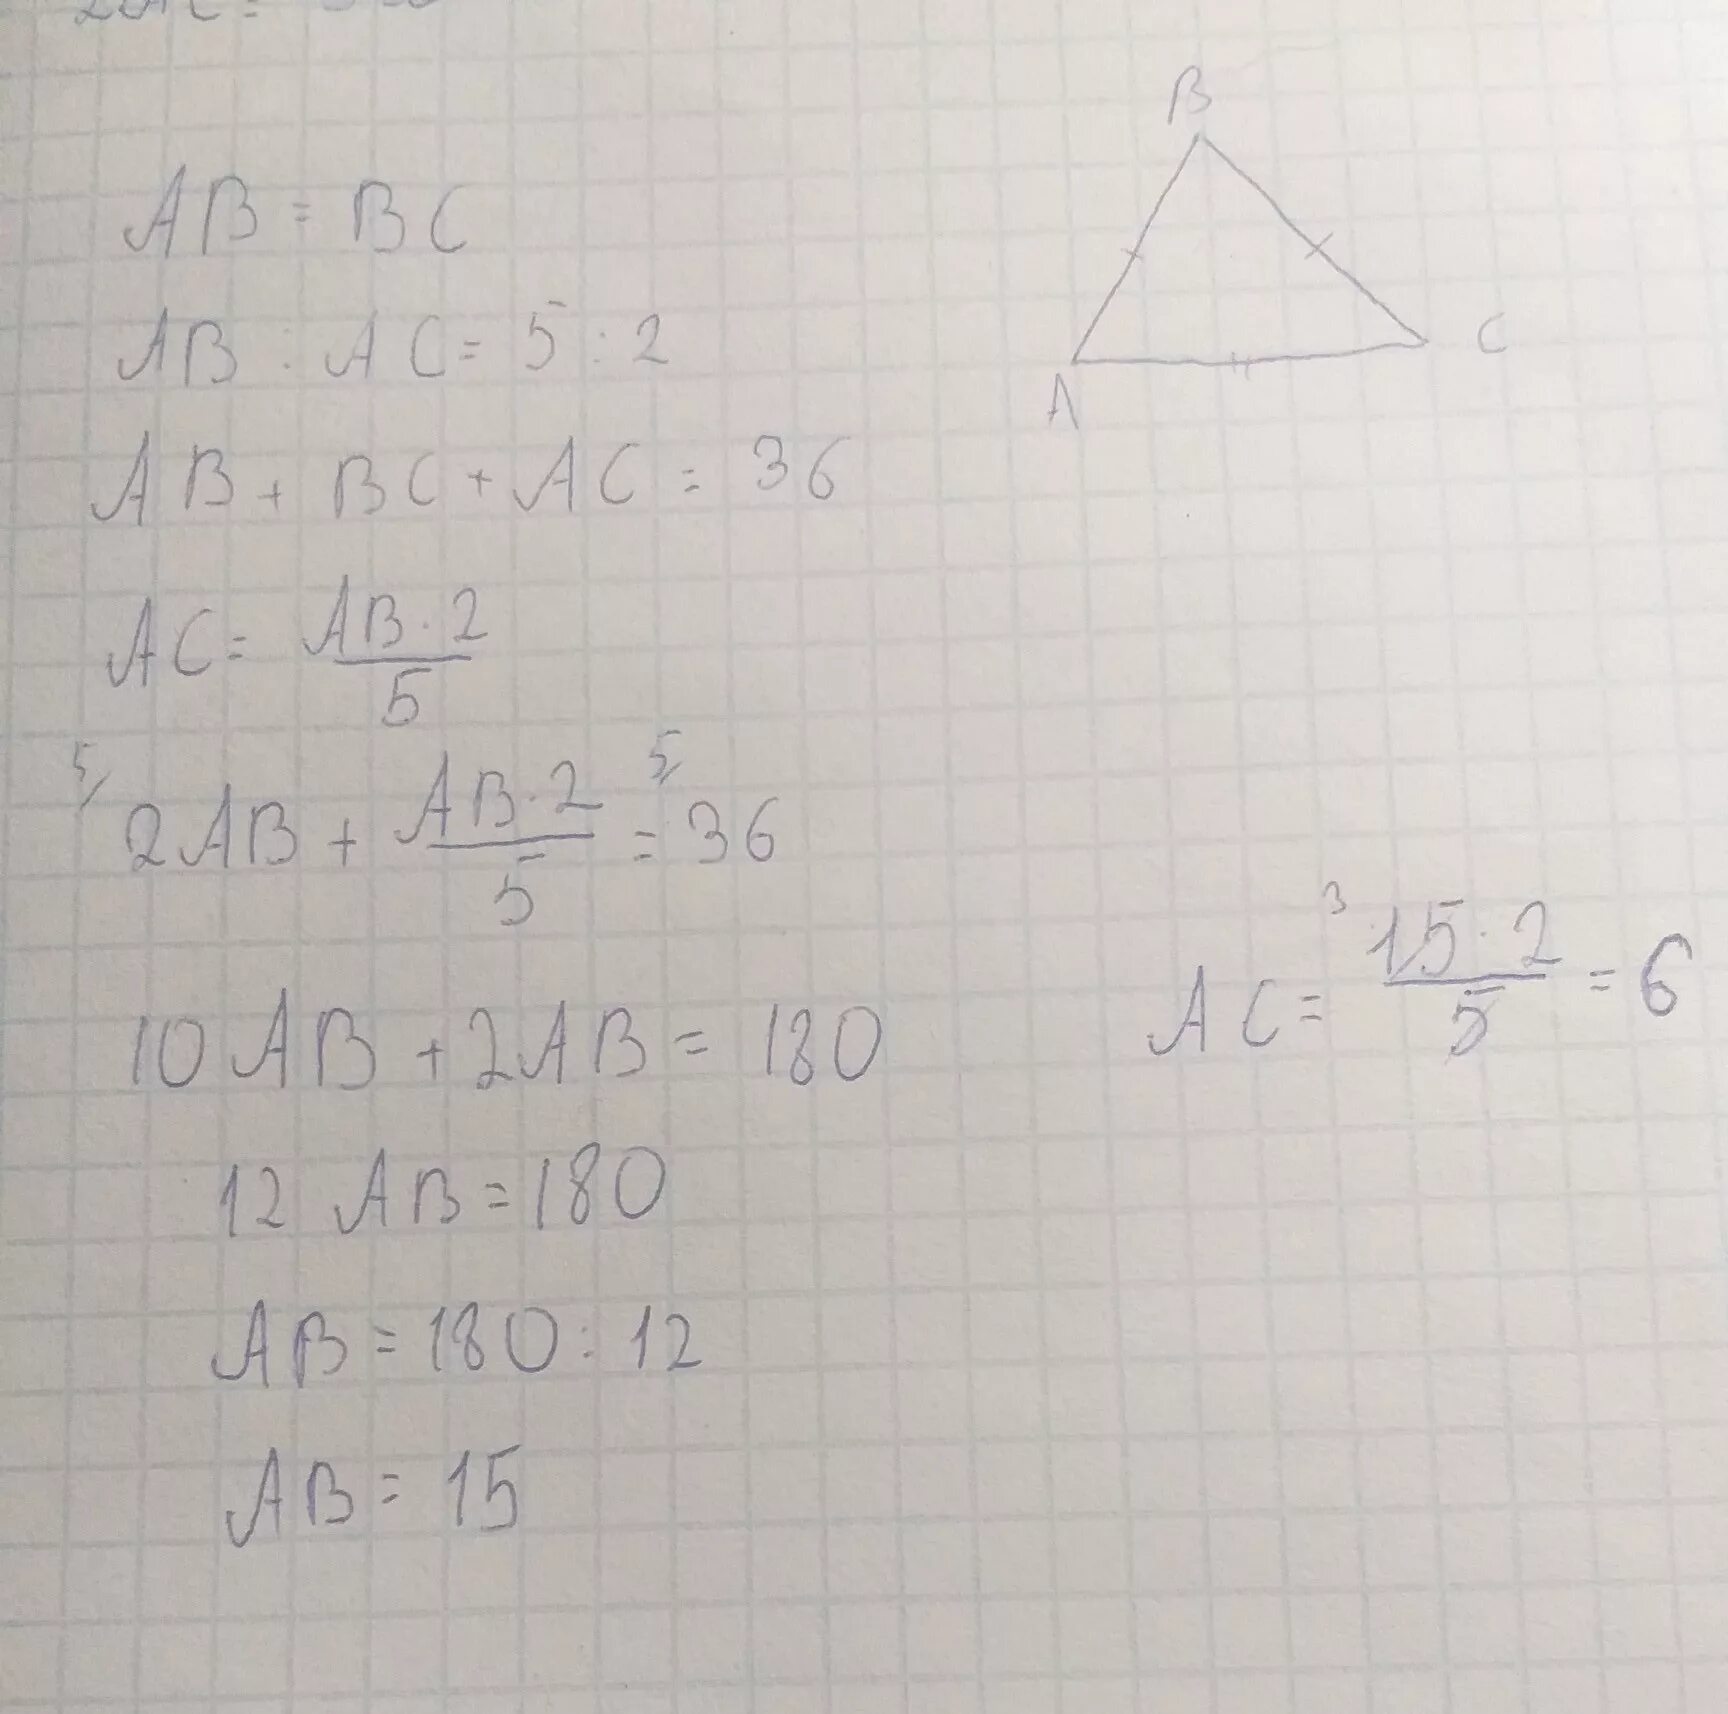 B
AB = BC
AB : AC = 5 : 2
C
A
AB + BC + AC = 36
AC = \frac{AB · 2}{5}
5/ 2AB + \frac{AB · 2}{5} = 5/ 36
AC = \frac{3 15 · 2}{5} = 6
10 AB + 2AB = 180
12 AB = 180
AB = 180 : 12
AB = 15